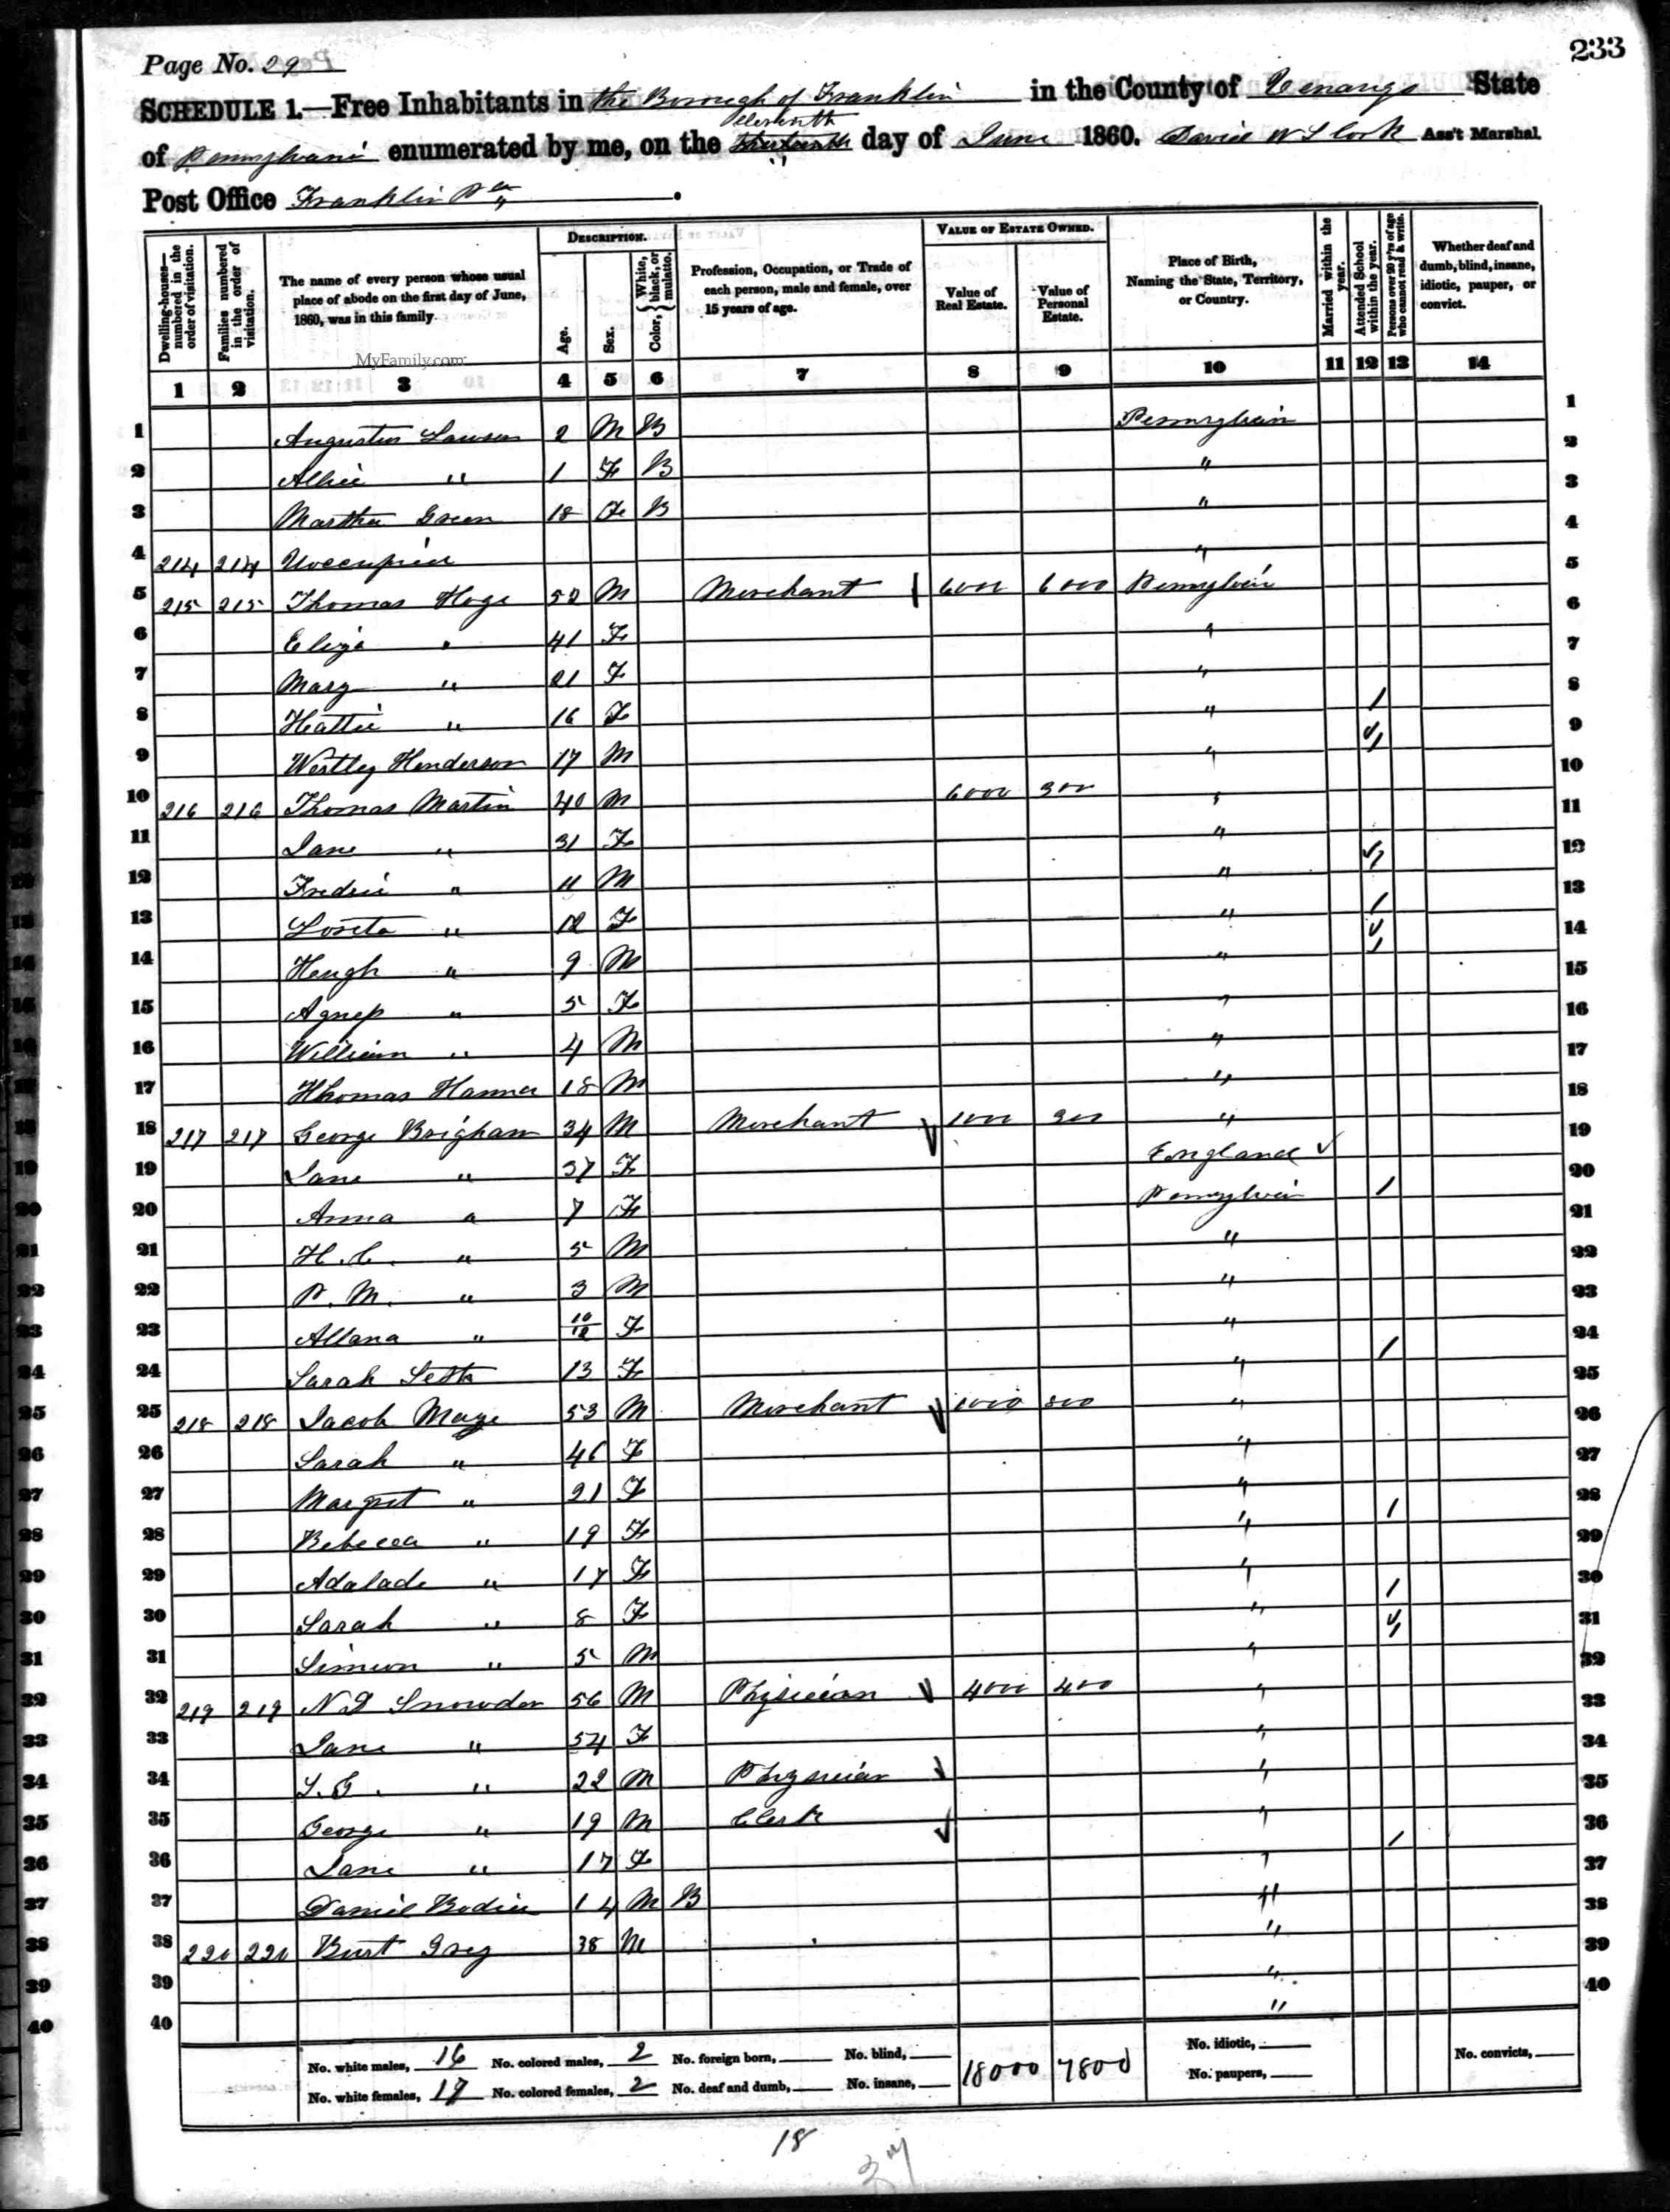 233
Page No. 29
SCHEDULE 1.—Free Inhabitants in the Borough of Franklin in the County of Venango State
Eleventh
of Pennsylvani enumerated by me, on the thirteenth day of June 1860. David W S Cook Ass't Marshal.
Post Office Franklin Pa
DESCRIPTION. VALUE OF ESTATE OWNED.
Dwelling-houses—numbered in the order of visitation. Families numbered in the order of visitation. The name of every person whose usual place of abode on the first day of June, 1860, was in this family. Age. Sex. Color, { White, black, or mulatto. Profession, Occupation, or Trade of each person, male and female, over 15 years of age. Value of Real Estate. Value of Personal Estate. Place of Birth, Naming the State, Territory, or Country. Married within the year. Attended School within the year. Persons over 20 y'rs of age who cannot read & write. Whether deaf and dumb, blind, insane, idiotic, pauper, or convict.
MyFamily.com
1 2 3 4 5 6 7 8 9 10 11 12 13 14
1 Augustus Lawson 2 M B Pennsylvain 1
2 Allie " 1 F B " 2
3 Martha Green 18 F B " 3
4 214 214 Unoccupied " 4
5 215 215 Thomas Hoge 52 M Merchant 6000 6000 Pennsylvain 5
6 Eliza " 41 F " 6
7 Mary " 21 F " 7
8 Hattie " 16 F " / 8
9 Westley Henderson 17 M " / 9
10 216 216 Thomas Martin 40 M 6000 300 " 10
11 Jane " 31 F " 11
12 Fredric " 11 M " / 12
13 Loreta " 12 F " / 13
14 Heugh " 9 M " / 14
15 Agness " 5 F " 15
16 William " 4 M " 16
17 Thomas Hanna 18 M " 17
18 217 217 George Brigham 34 M Merchant 1000 300 " 18
19 Jane " 37 F England 19
20 Anna " 7 F Pennsylvain / 20
21 H. C. " 5 M " 21
22 P. M. " 3 M " 22
23 Allana " 10/12 F " 23
24 Sarah 13 F " / 24
25 218 218 Jacob Mays 53 M Merchant 1000 800 " 25
26 Sarah " 46 F " 26
27 Margret " 21 F " 27
28 Rebecca " 19 F " / 28
29 Adalade " 17 F " 29
30 Sarah " 8 F " / 30
31 Simeon " 5 M " / 31
32 219 219 N D Snowden 56 M Physician 4000 400 " 32
33 Jane " 54 F " 33
34 S. G. " 22 M Physician " 34
35 George " 19 M Clerk " 35
36 Jane " 17 F " / 36
37 Daniel Bodien 14 M B " 37
38 220 220 Burt Grey 38 M " 38
39 " 39
40 " 40
No. white males, 16 No. colored males, 2 No. foreign born, No. blind, 18000 7800 No. idiotic, No. convicts,
No. white females, 17 No. colored females, 2 No. deaf and dumb, No. insane, No. paupers,
18
37